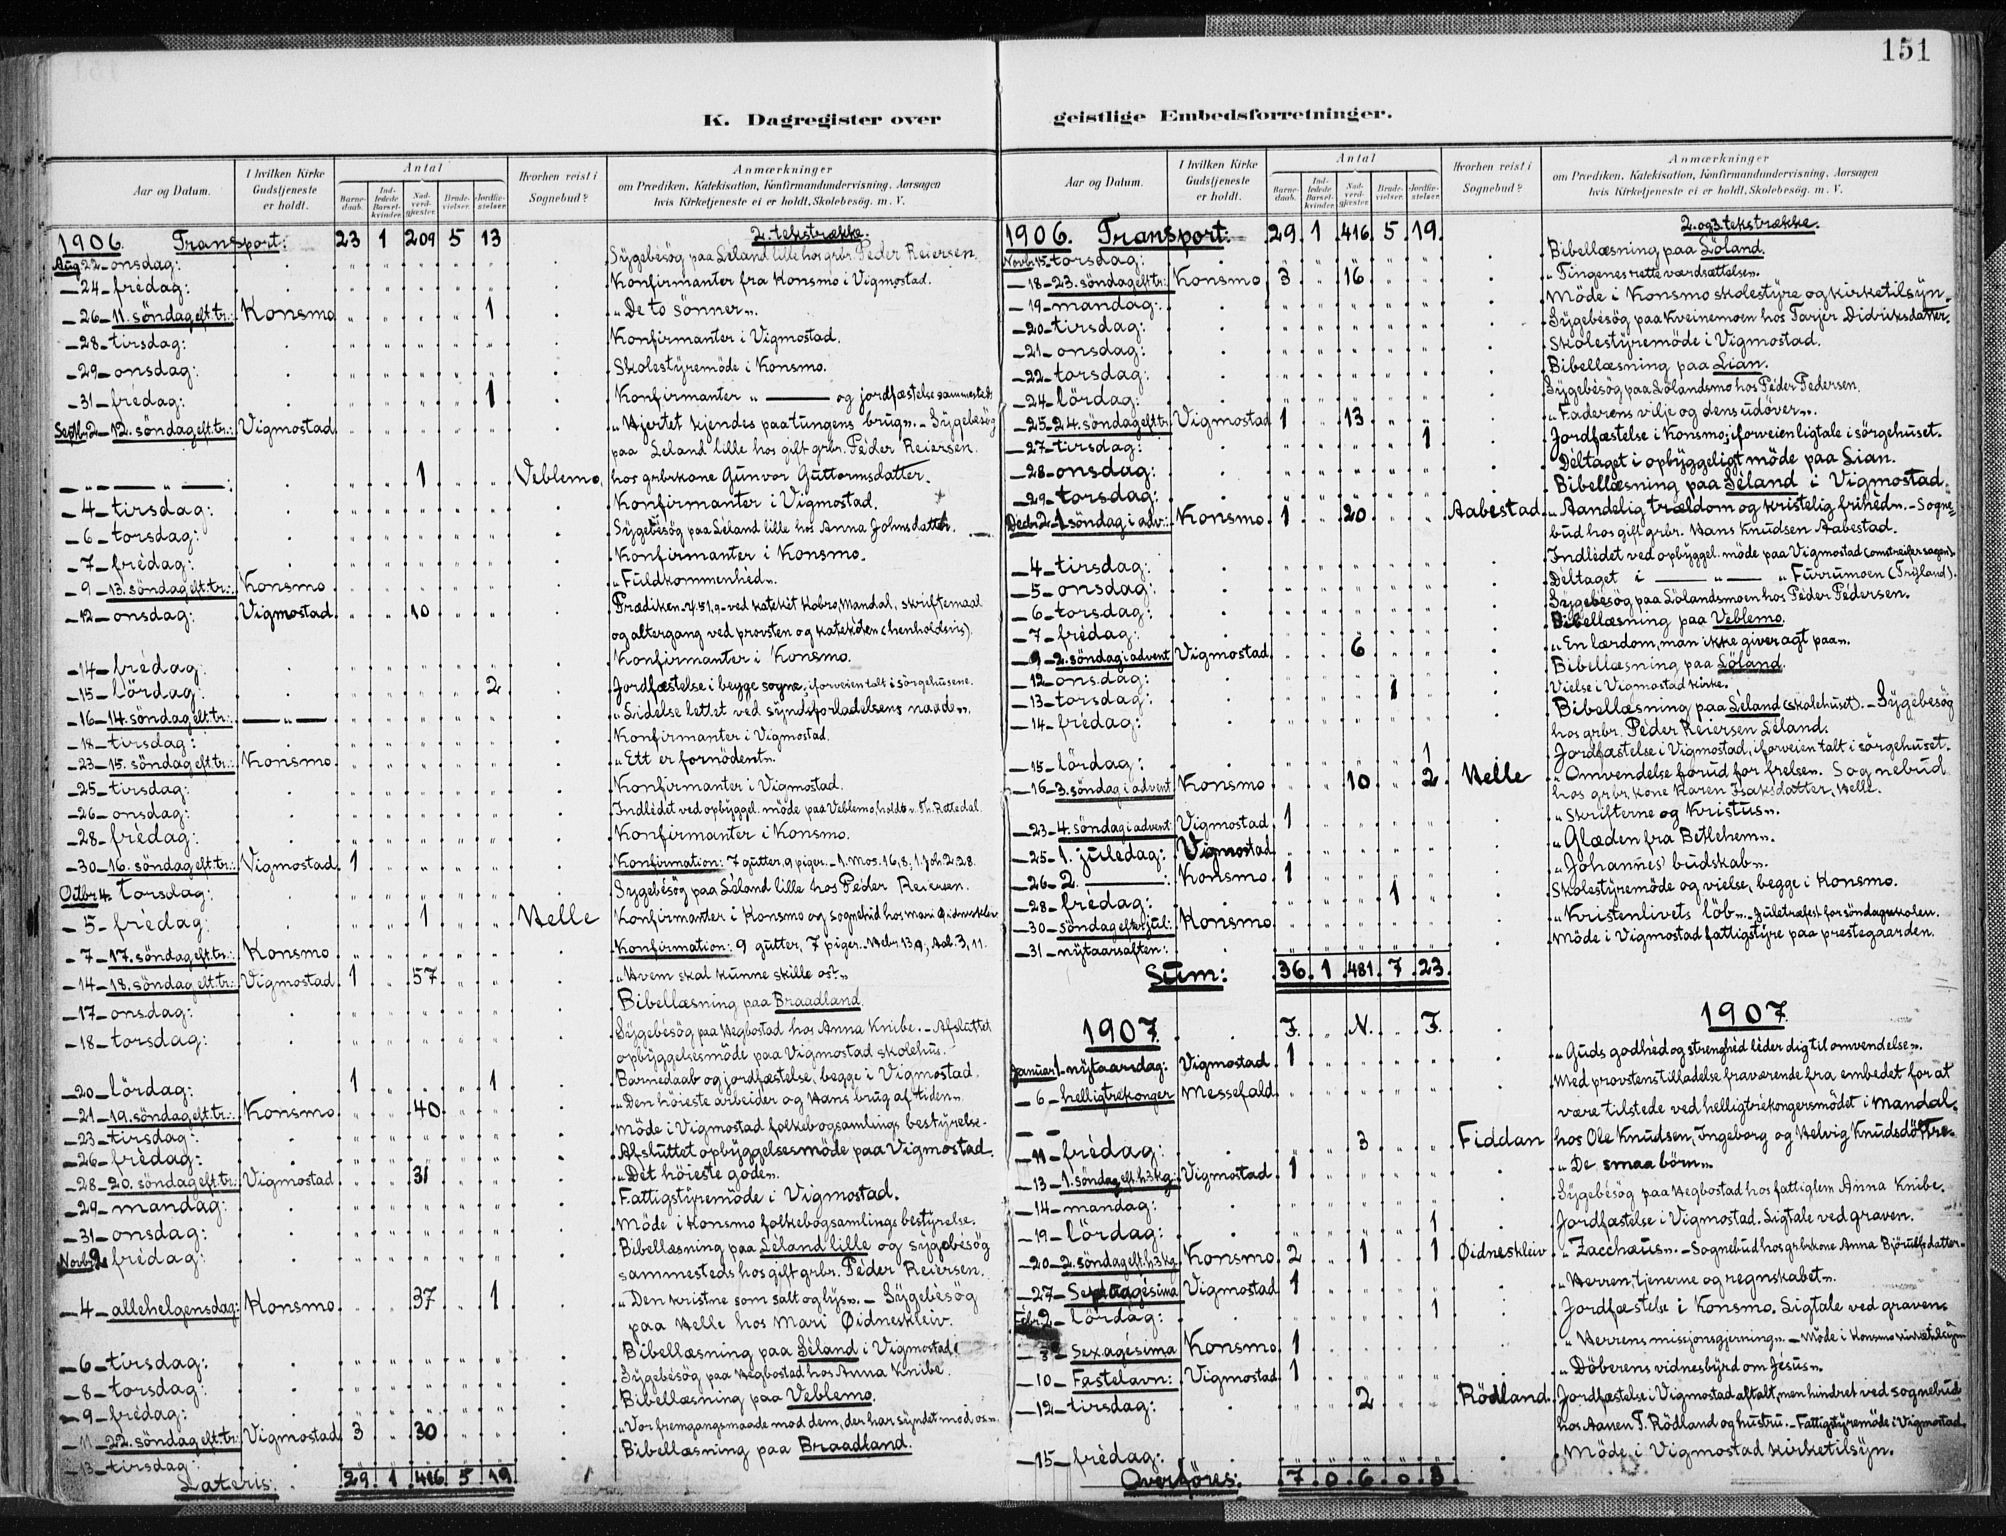 151
K. Dagregister over
geistlige Embedsforretninger.
Aar og Datum.
I hvilken Kirke Gudstjeneste er holdt.
Antal
Barne-daab.
Ind-ledede Barsel-kvinder.
Nad-verd-gjæster.
Brude-vielser.
Jordfæ-stelser.
Hvorhen reist i Sognebud?
Anmærkninger
om Prædiken, Katekisation, Konfirmandundervisning, Aarsagen
hvis Kirketjeneste ei er holdt, Skolebesøg. m. V.
1906. Transport: 23 1 209 5 13 2. tekstrække.
Aug 22 - onsdag: Sygebésög paa Léland lille hos grbr. Péder Reiersen.
- 24 - frédag: Konfirmanter fra Konsmo i Vigmostad.
- 26 - 11. söndag eft. tr.: Konsmo 1 "De to sönner".
- 28 - tirsdag: Konfirmanter i Vigmostad.
- 29 - onsdag: Skolestyremöde i Konsmo.
- 31 - frédag: 1 Konfirmanter " — og jordfæstelse sammesteds
Septbr 2 - 12. söndag eft. tr.: Vigmostad "Hjertet kjendes paa tungens brug". - Sygebésög
paa Léland lille hos gift grbr. Péder Reiersen.
- " - " - : 1 Veblemo hos grbrkone Gunvor Guttormsdatter.
- 4 - tirsdag: Konfirmanter i Vigmostad.
- 6 - torsdag: Sygebésög paa Léland lille hos Anna Johnsdatter.
- 7 - frédag: Konfirmanter i Konsmo.
- 9 - 13. söndag eft. tr.: Konsmo "Fuldkommenhéd".
- 12 - onsdag: Vigmostad 10 Prædiken ved katekét Kobro, Mandal, skriftemaal
og altergang ved provsten og katekéten (henholdsvis).
- 14 - frédag: Konfirmanter i Konsmo.
- 15 - lördag: 2 Jordfæstelse i begge sogne, i forveien talt i sörgehusene.
- 16 - 14. söndag eft. tr.: — " — "Lidelse lettet ved syndsforladelsens naade".
- 18 - tirsdag: Konfirmanter i Vigmostad.
- 23 - 15. söndag eft. tr.: Konsmo "Ett er fornödent".
- 25 - tirsdag: Konfirmanter i Vigmostad.
- 26 - onsdag: Indlédet ved opbyggel. möde paa Veblemo, holdt v. Th. Rettedal.
- 28 - frédag: Konfirmanter i Konsmo.
- 30 - 16. söndag eft. tr.: Vigmostad 1 Konfirmation: 7 gutter, 9 piger. - 1. Mos. 16,8; 1. Joh. 2,28.
Octbr 4. torsdag: Sygebésög paa Léland lille hos Péder Reiersen.
- 5 - frédag: 1 Helle Konfirmanter i Konsmo og sognebud hos Mari Øidneskleiv
- 7 - 17. söndag eft. tr.: Konsmo Konfirmation: 9 gutter, 7 piger. - Hebr. 13,9; Aab. 3,11.
- 14 - 18. söndag eft. tr.: Vigmostad 1 57 "Hvem skal kunne skille os?"
- 17 - onsdag: Bibellæsning paa Braadland.
- 18 - torsdag: Sygebésög paa Hegbostad hos Anna Knibe. - Afsluttet
opbyggelsesmöde paa Vigmostad skolehus.
- 20 - lördag: 1 1 Barnedaab og jordfæstelse, begge i Vigmostad.
- 21 - 19. söndag eft. tr.: Konsmo 40 "Den höieste arbeider og Hans brug af tiden".
- 23 - tirsdag: Möde i Vigmostad folkebogsamlings bestyrelse.
- 26 - frédag: Afsluttet opbyggelsesmöde paa Vigmostad.
- 28 - 20. söndag eft. tr.: Vigmostad 31 "Dét höieste gode".
- 29 - mandag: Fattigstyremöde i Vigmostad.
- 31 - onsdag: Möde i Konsmo folkebogsamlings bestyrelse.
Novbr 2. frédag: Bibellæsning paa Léland lille og sygebésög
sammesteds hos gift grbr. Péder Reiersen.
- 4 - allehelgensdag: Konsmo 37 1 "Den kristne som salt og lys". - Sygebésög
paa Helle hos Mari Øidneskleiv.
- 6 - tirsdag: Bibellæsning paa Léland i Vigmostad.
- 8 - torsdag: Sygebésög paa Hegbostad hos Anna Knibe.
- 9 - frédag: Bibellæsning paa Veblemo.
- 11 - 22. söndag eft. tr.: Vigmostad 3 30 "Vor fremgangsmaade mod dem, der har syndet mod os".
- 13 - tirsdag: Bibellæsning paa Braadland.
Lateris: 29 1 416 5 19
Aar og Datum.
I hvilken Kirke Gudstjeneste er holdt.
Antal
Barne-daab.
Ind-ledede Barsel-kvinder.
Nad-verd-gjæster.
Brude-vielser.
Jordfæ-stelser.
Hvorhen reist i Sognebud?
Anmærkninger
om Prædiken, Katekisation, Konfirmandundervisning, Aarsagen
hvis Kirketjeneste ei er holdt, Skolebesøg. m. V.
1906. Transport: 29. 1 416. 5 19. 2. og 3. tekstrække.
Novbr. 15. torsdag: Bibellæsning paa Löland.
- 18 - 23. söndag eft. tr.: Konsmo 3 16 "Tingenes rette værdsættelse".
- 19 - mandag: Möde i Konsmo skolestyre og kirketilsyn.
- 20 - tirsdag: Sygebésög paa Kveinemoen hos Tarjer Didriksdatter.
- 21 - onsdag: Skolestyremöde i Vigmostad.
- 22 - torsdag: Bibellæsning paa Lian.
- 24 - lördag: Sygebésög paa Lölandsmo hos Péder Pedersen.
- 25 - 24. söndag eft. tr. Vigmostad 1 13 "Faderens vilje og dens udöver".
- 27 - tirsdag: 1 Jordfæstelse i Konsmo; i forveien ligtale i sörgehuset.
- 28 - onsdag: Déltaget i opbyggeligt möde paa Lian.
- 29 - torsdag: Bibellæsning paa Léland i Vigmostad.
Decbr 2 - 1. söndag i adv.: Konsmo 1 20 Aabestad "Aandelig trældom og kristelig frihéd". - Sogne-
bud hos gift grbr. Hans Knudsen Aabestad.
- 4 - tirsdag: Indlédet ved opbyggel. möde paa Vigmostad (omstreifersagen).
- 5 - onsdag: Déltaget i — " — " Furrumoen (Tryland).
- 6 - torsdag: Sygebésög paa Lölandsmoen hos Péder Pédersen.
- 7 - frédag: Bibellæsning paa Veblemo.
- 9 - 2. söndag i advent Vigmostad 6 "En lærdom, man ikke giver agt paa".
- 12 - onsdag: Bibellæsning paa Löland.
- 13 - torsdag: 1 Vielse i Vigmostad kirke.
- 14 - frédag: Bibellæsning paa Léland (skolehuset). - Sygebésög
hos grbr. Péder Reiersen Léland.
- 15 - lördag: 1 Jordfæstelse i Vigmostad, i forveien talt i sörgehuset.
- 16 - 3. söndag i advent Konsmo 10 2 Helle "Omvendelse forud for frelse". Sognebud
hos grbrkone Karen Isaksdatter, Helle.
- 23 - 4. söndag i advent: Vigmostad 1 "Skrifterne og Kristus".
- 25 - 1. juledag: Vigmostad "Glæden fra Betlehem".
- 26 - 2. — : Konsmo 1 "Johannes' budskab".
- 28 - frédag: 1 Skolestyremöde og vielse, begge i Konsmo.
- 30 - söndag efter jul: Konsmo "Kristenlivets löb". - Juletræfest for söndagsskolen.
- 31 - nytaarsaften: Möde i Vigmostad fattigstyre paa prestegaarden.
Sum: 36. 1 481. 7 23.
1907 F. N. F. 1907
Januar 1. nytaarsdag: Vigmostad 1 "Guds godhéd og strenghéd léder dig til omvendelse".
- 6 - helligtrekonger Messefald Med provstens tilladelse fraværende fra embedet for at
være tilstede ved helligtrekongersmödet i Mandal.
- 11 - frédag: 3 Fiddan hos Ole Knudsen, Ingeborg og Helvig Knudsdöttre.
- 13 - 1. söndag eft. h3kg: Vigmostad 1 "De smaa börn".
- 14 - mandag: Sygebésög paa Hegbostad hos fattiglem Anna Knibe.
- 19 - lördag: 1 Jordfæstelse i Vigmostad. Ligtale ved graven.
- 20 - 2. söndag eft. h3kg Konsmo 2 1 1 Øidneskleiv "Zacchæus". - Sognebud hos grbrkone Anna Björulfsdatter
- 27 - Septuagésima Vigmostad 1 "Herren, tjenerne og regnskabet".
Febr. 2 - lördag: 1 Jordfæstelse i Konsmo. Ligtale ved graven.
- 3 - Sexagésima Konsmo 1 "Herrens missjonsgjerning". - Möde i Konsmo kirketilsyn
- 10 - Fastelavn: Vigmostad 1 "Döberens vidnesbyrd om Jésus".
- 12 - tirsdag: 2 Rödland Jordfæstelse i Vigmostad aftalt, men hindret ved sognebud
hos Aanen T. Rödland og hustru. - Fattigstyremöde i Vigmostad.
- 15 - frédag: Möde i Vigmostad kirketilsyn.
Overföres: 7 0 6 0 3